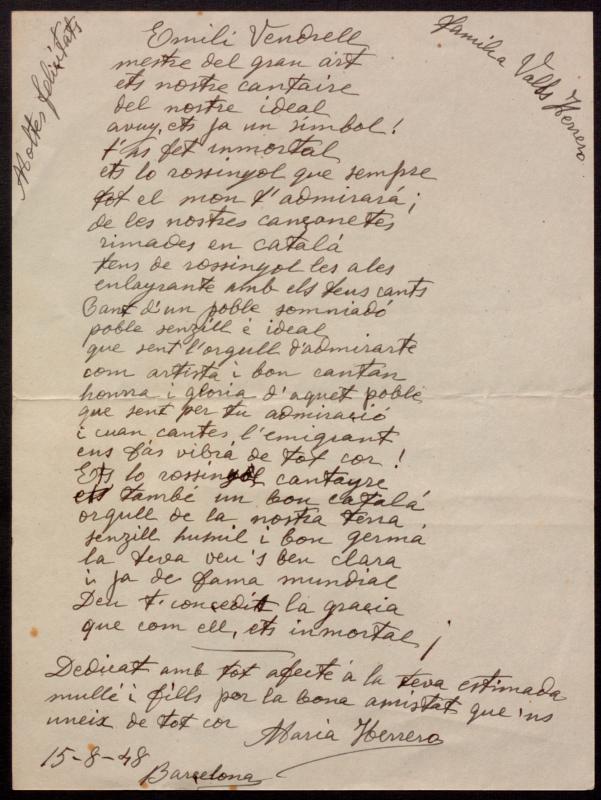 Moltes felicitats
Familia Valds Herrero
Emili Vendrell
mestre del gran art
ets nostre cantaire
del nostre ideal
avuy, ets ja un símbol!
t'has fet inmortal
ets lo rossinyol que sempre
tot el mon t'admirará;
de les nostres cançonetes
rimades en catalá
tens de rossinyol les ales
enlayrante amb els teus cants
Cant d'un poble somniadó
poble senzill e ideal
que sent l'orgull d'admirarte
com artista i bon cantan
honra i gloria d'aquet poble
que sent per tu admiració
i cuan cantes l'emigrant
ens fás vibrá de tot cor!
Ets lo rossinyol cantayre
ets també un bon catalá
orgull de la nostra terra
senzill humil i bon germá
la teva veu's ben clara
i ja de fama mundial
Deu t'concedit la gracia
que com ell, ets inmortal!
Dedicat amb tot afecte á la teva estimada
mullé i fills por la bona amistat que 'ns
uneix de tot cor
Maria Herrero
15-8-48
Barcelona